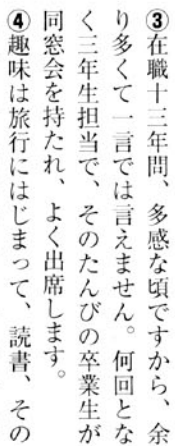 ③在職十三年間、多感な頃ですから、余
り多くて一言では言えません。何回とな
く三年生担当で、そのたんびの卒業生が
同窓会を持たれ、よく出席します。
④趣味は旅行にはじまって、読書、その